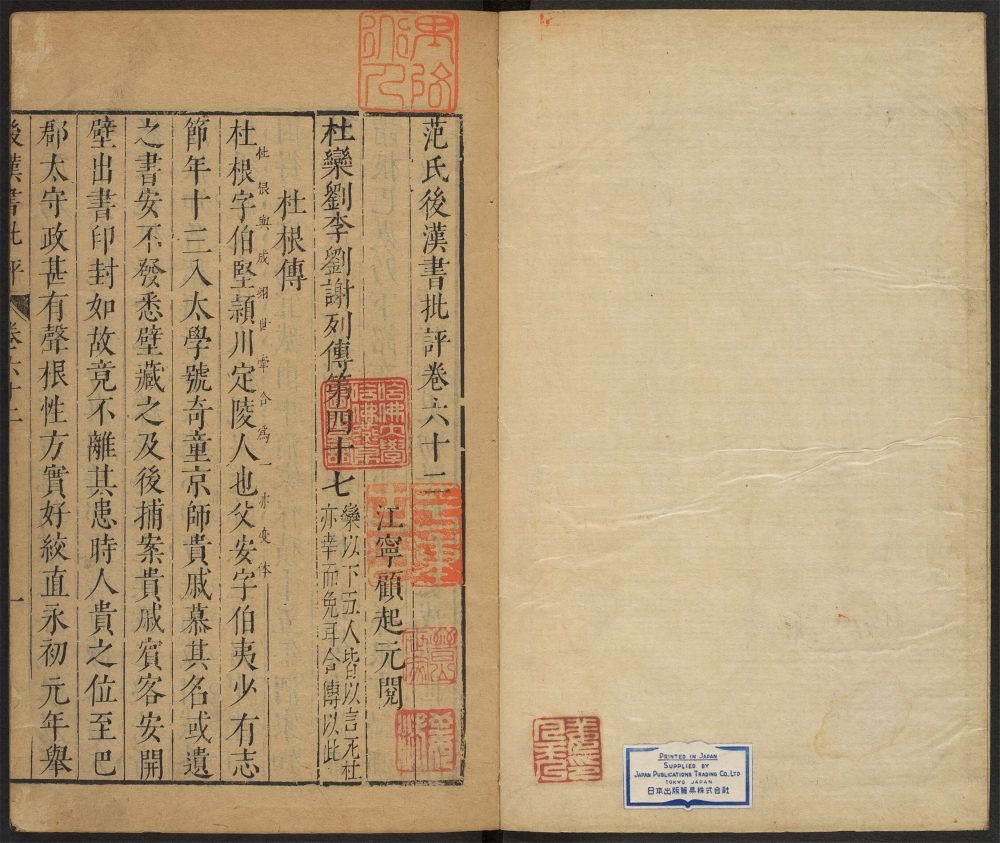 范氏後漢書批評卷六十二
江寧顧起元閱
杜欒劉李劉謝列傳第四十七
欒以下五人皆以言死杜
亦幸而免耳合傳以此
杜根傳
杜根與成翊世牽合爲一亦變体
杜根字伯堅潁川定陵人也父安字伯夷少有志
節年十三入太學號奇童京師貴戚慕其名或遺
之書安不發悉壁藏之及後捕案貴戚賓客安開
壁出書印封如故竟不離其患時人貴之位至巴
郡太守政甚有聲根性方實好絞直永初元年舉
後漢書批評
卷六十二
一
哈佛大學
PRINTED IN JAPAN
SUPPLIED BY
JAPAN PUBLICATIONS TRADING CO., LTD
TOKYO JAPAN
日本出版貿易株式会社